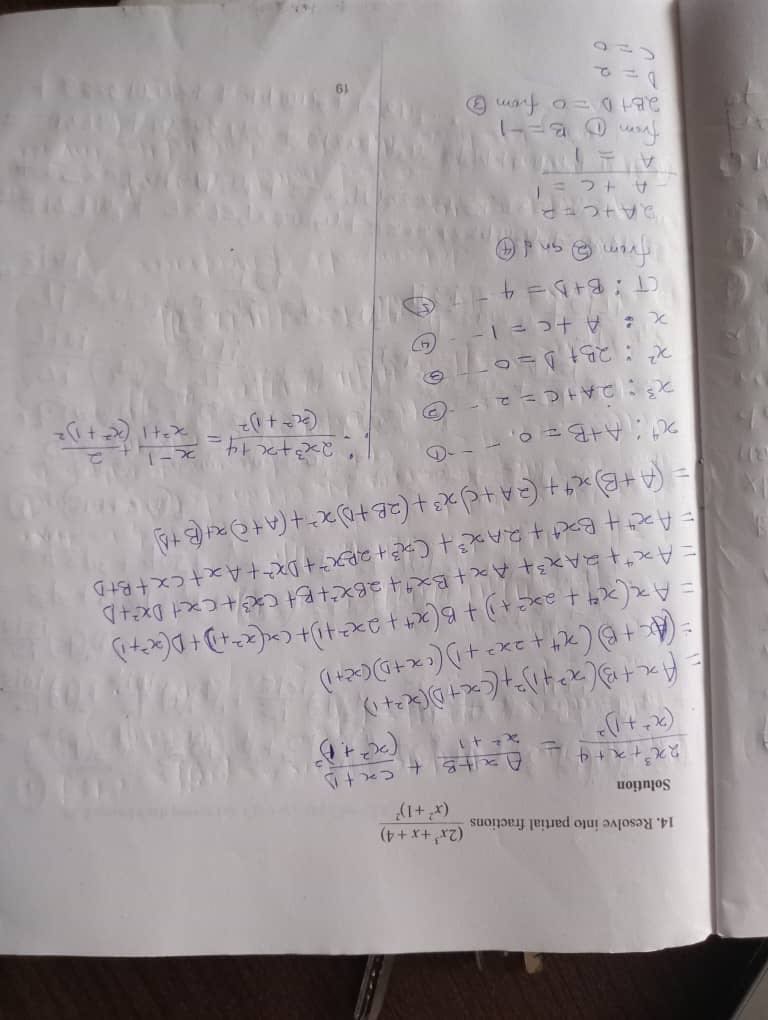 14. Resolve into partial fractions (2x³+x+4)/(x²+1)²
Solution
(2x³+x+4)/(x²+1)² = (Ax+B)/(x²+1) + (Cx+D)/(x²+1)²
= (Ax+B)(x²+1)²+(Cx+D)(x²+1)
= (Ax+B)(x⁴+2x²+1)(Cx+D)(x²+1)
= Ax(x⁴+2x²+1)+B(x⁴+2x²+1)+Cx(x²+1)+D(x²+1)
= Ax⁴+2Ax³+Ax+Bx⁴+2Bx²+B+Cx³+Cx+Dx²+D
= Ax⁴+Bx⁴+2Ax³+Cx³+2Bx²+Dx²+Ax+Cx+B+D
= (A+B)x⁴+(2A+C)x³+(2B+D)x²+(A+C)x+(B+D)
x⁴: A+B=0. - - - ①
x³: 2A+C=2 - - ②
x²: 2B+D=0 - - ③
x: A+C=1 - - ④
CT: B+D=4 - - ⑤
from ② and ④
2A+C=2
-A+C=1
A=1
from ① B=-1
2B+D=0 from ③
D=2
C=0
∴ (2x³+x+4)/(x²+1)² = (x-1)/(x²+1) + 2/(x²+1)²
19